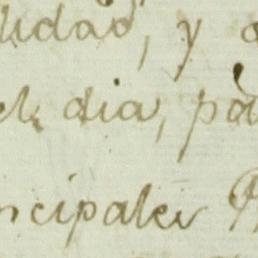 lidad, y
el dia, pa
ncipales